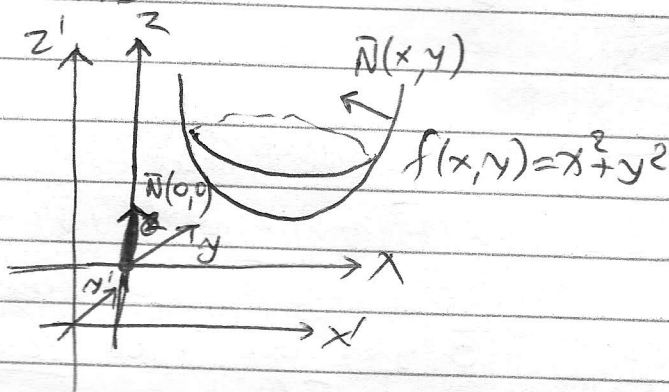 z'
z
N̄(x,y)
f(x,y)=x²+y²
N̄(0,0)
y
x
y'
x'